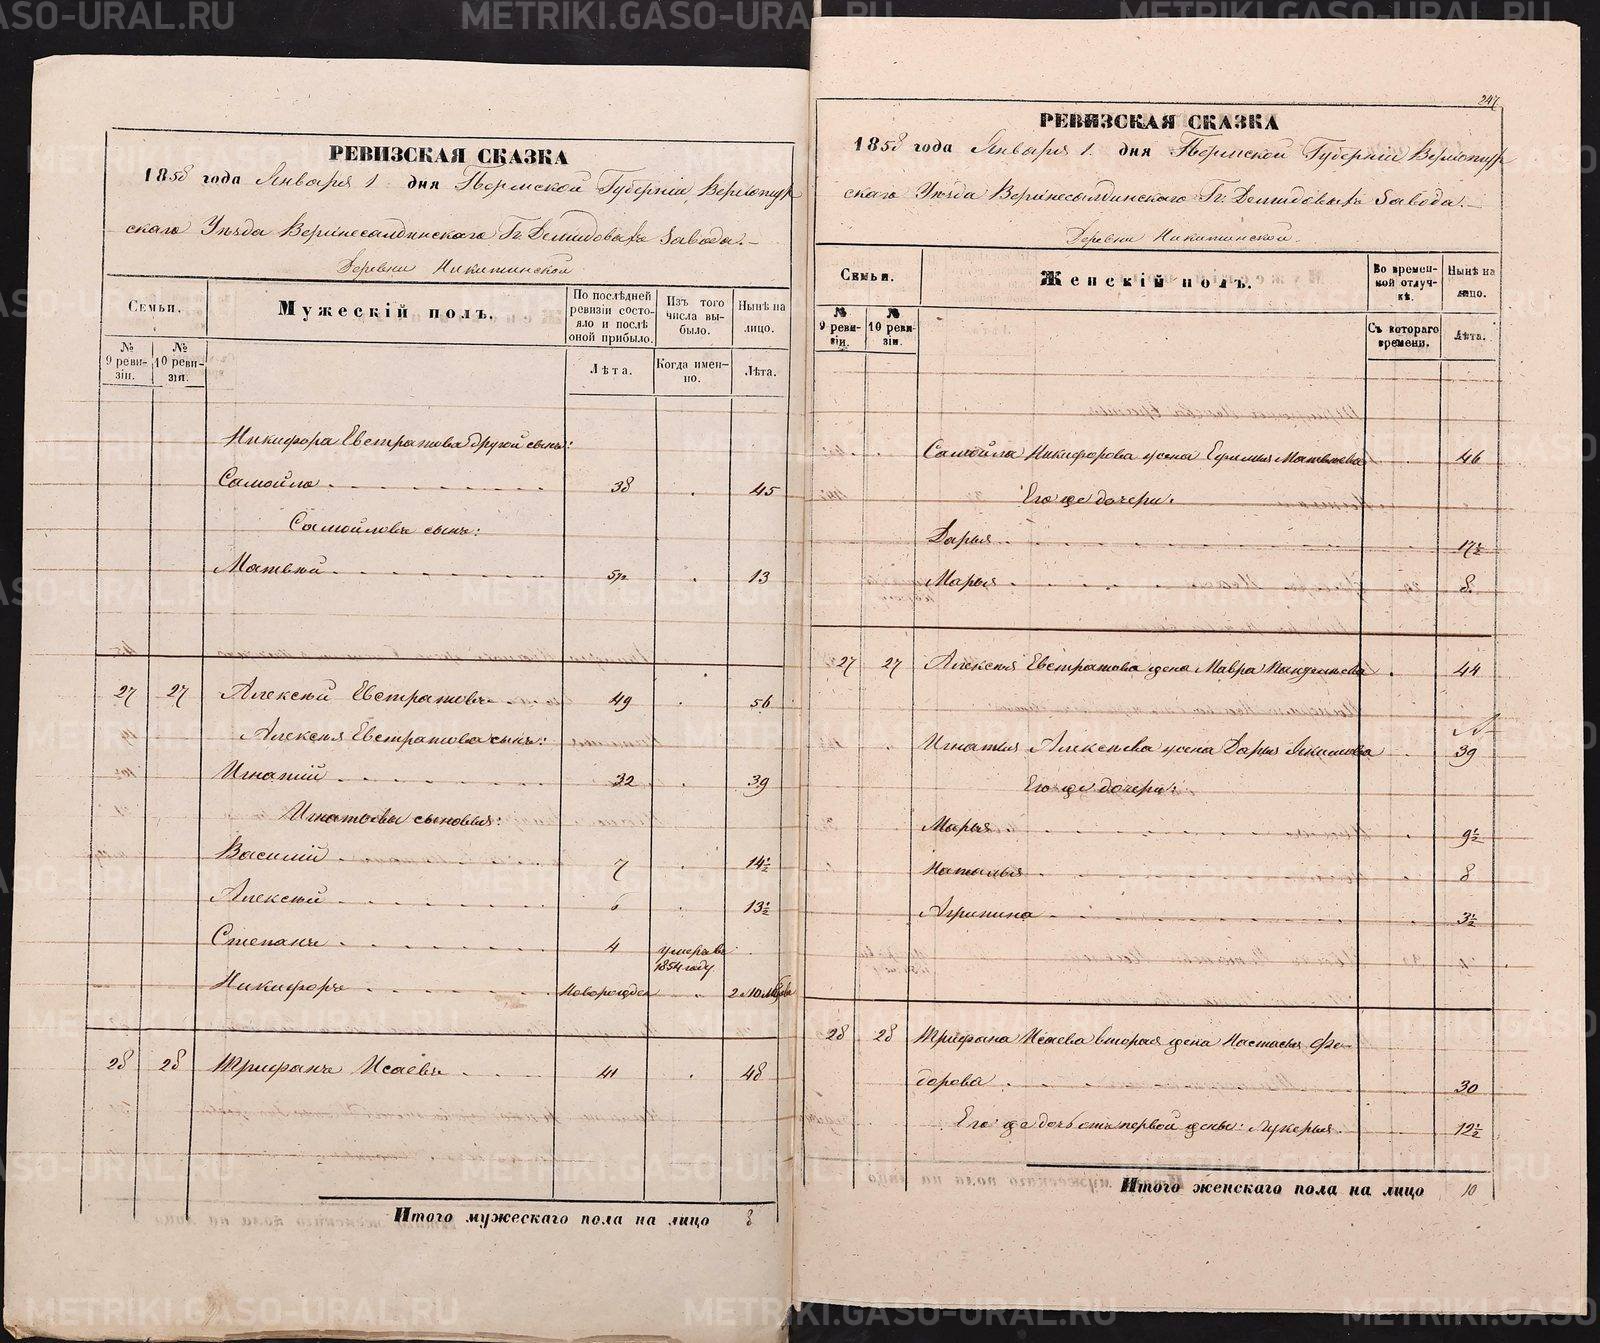 РЕВИЗСКАЯ СКАЗКА
1858 года Января 1 дня Пермской Губернiи, Верхотур
скаго Уѣзда Верхнесалдинскаго Гг. Демидовыхъ Завода.
Деревни Никитинской
Семьи.
Мужескiй полъ.
По послѣдней ревизiи состояло и послѣ оной прибыло.
Изъ того числа выбыло.
Нынѣ на лицо.
№ 9 ревизiи.
№ 10 ревизiи.
Лѣта.
Когда именно.
Лѣта.
Никифора Евстратова другой сынъ:
Самойло 38 45
Самойловъ сынъ:
Матвѣй 5½ 13
27 27 Алексѣй Евстратовъ 49 56
Алексѣя Евстратова сынъ:
Игнатiй 32 39
Игнатьевы сыновья:
Василiй 7 14½
Алексѣй 6 13½
Степанъ 4 умеръ въ 1854 году
Никифоръ Новорожден 2
28 28 Трифанъ Исаевъ 41 48
Итого мужескаго пола на лицо 8
247
РЕВИЗСКАЯ СКАЗКА
1858 года Января 1. дня Пермской Губернiи Верхотур
скаго Уѣзда Верхнесалдинскаго Гг. Демидовыхъ Завода.
Деревни Никитинской.
Семьи.
Женскiй полъ.
Во временной отлучкѣ.
Нынѣ на лицо.
№ 9 ревизiи.
№ 10 ревизiи.
Съ котораго времени.
Лѣта.
Самойла Никифорова жена Ефимья Матвѣева 46
Его же дочери:
Дарья 17½
Марья 8
27 27 Алексѣя Евстратова жена Мавра 44
Игнатья Алексѣева жена Дарья Якимова 39
Его же дочери:
Марья 9½
Наталья 8
Агрипина 3½
28 28 Трифана Исаева вторая жена Настасья Фе-
дорова 30
Его же дочь отъ первой жены: Лукерья 12½
Итого женскаго пола на лицо 10
METRIKI.GASO-URAL.RU